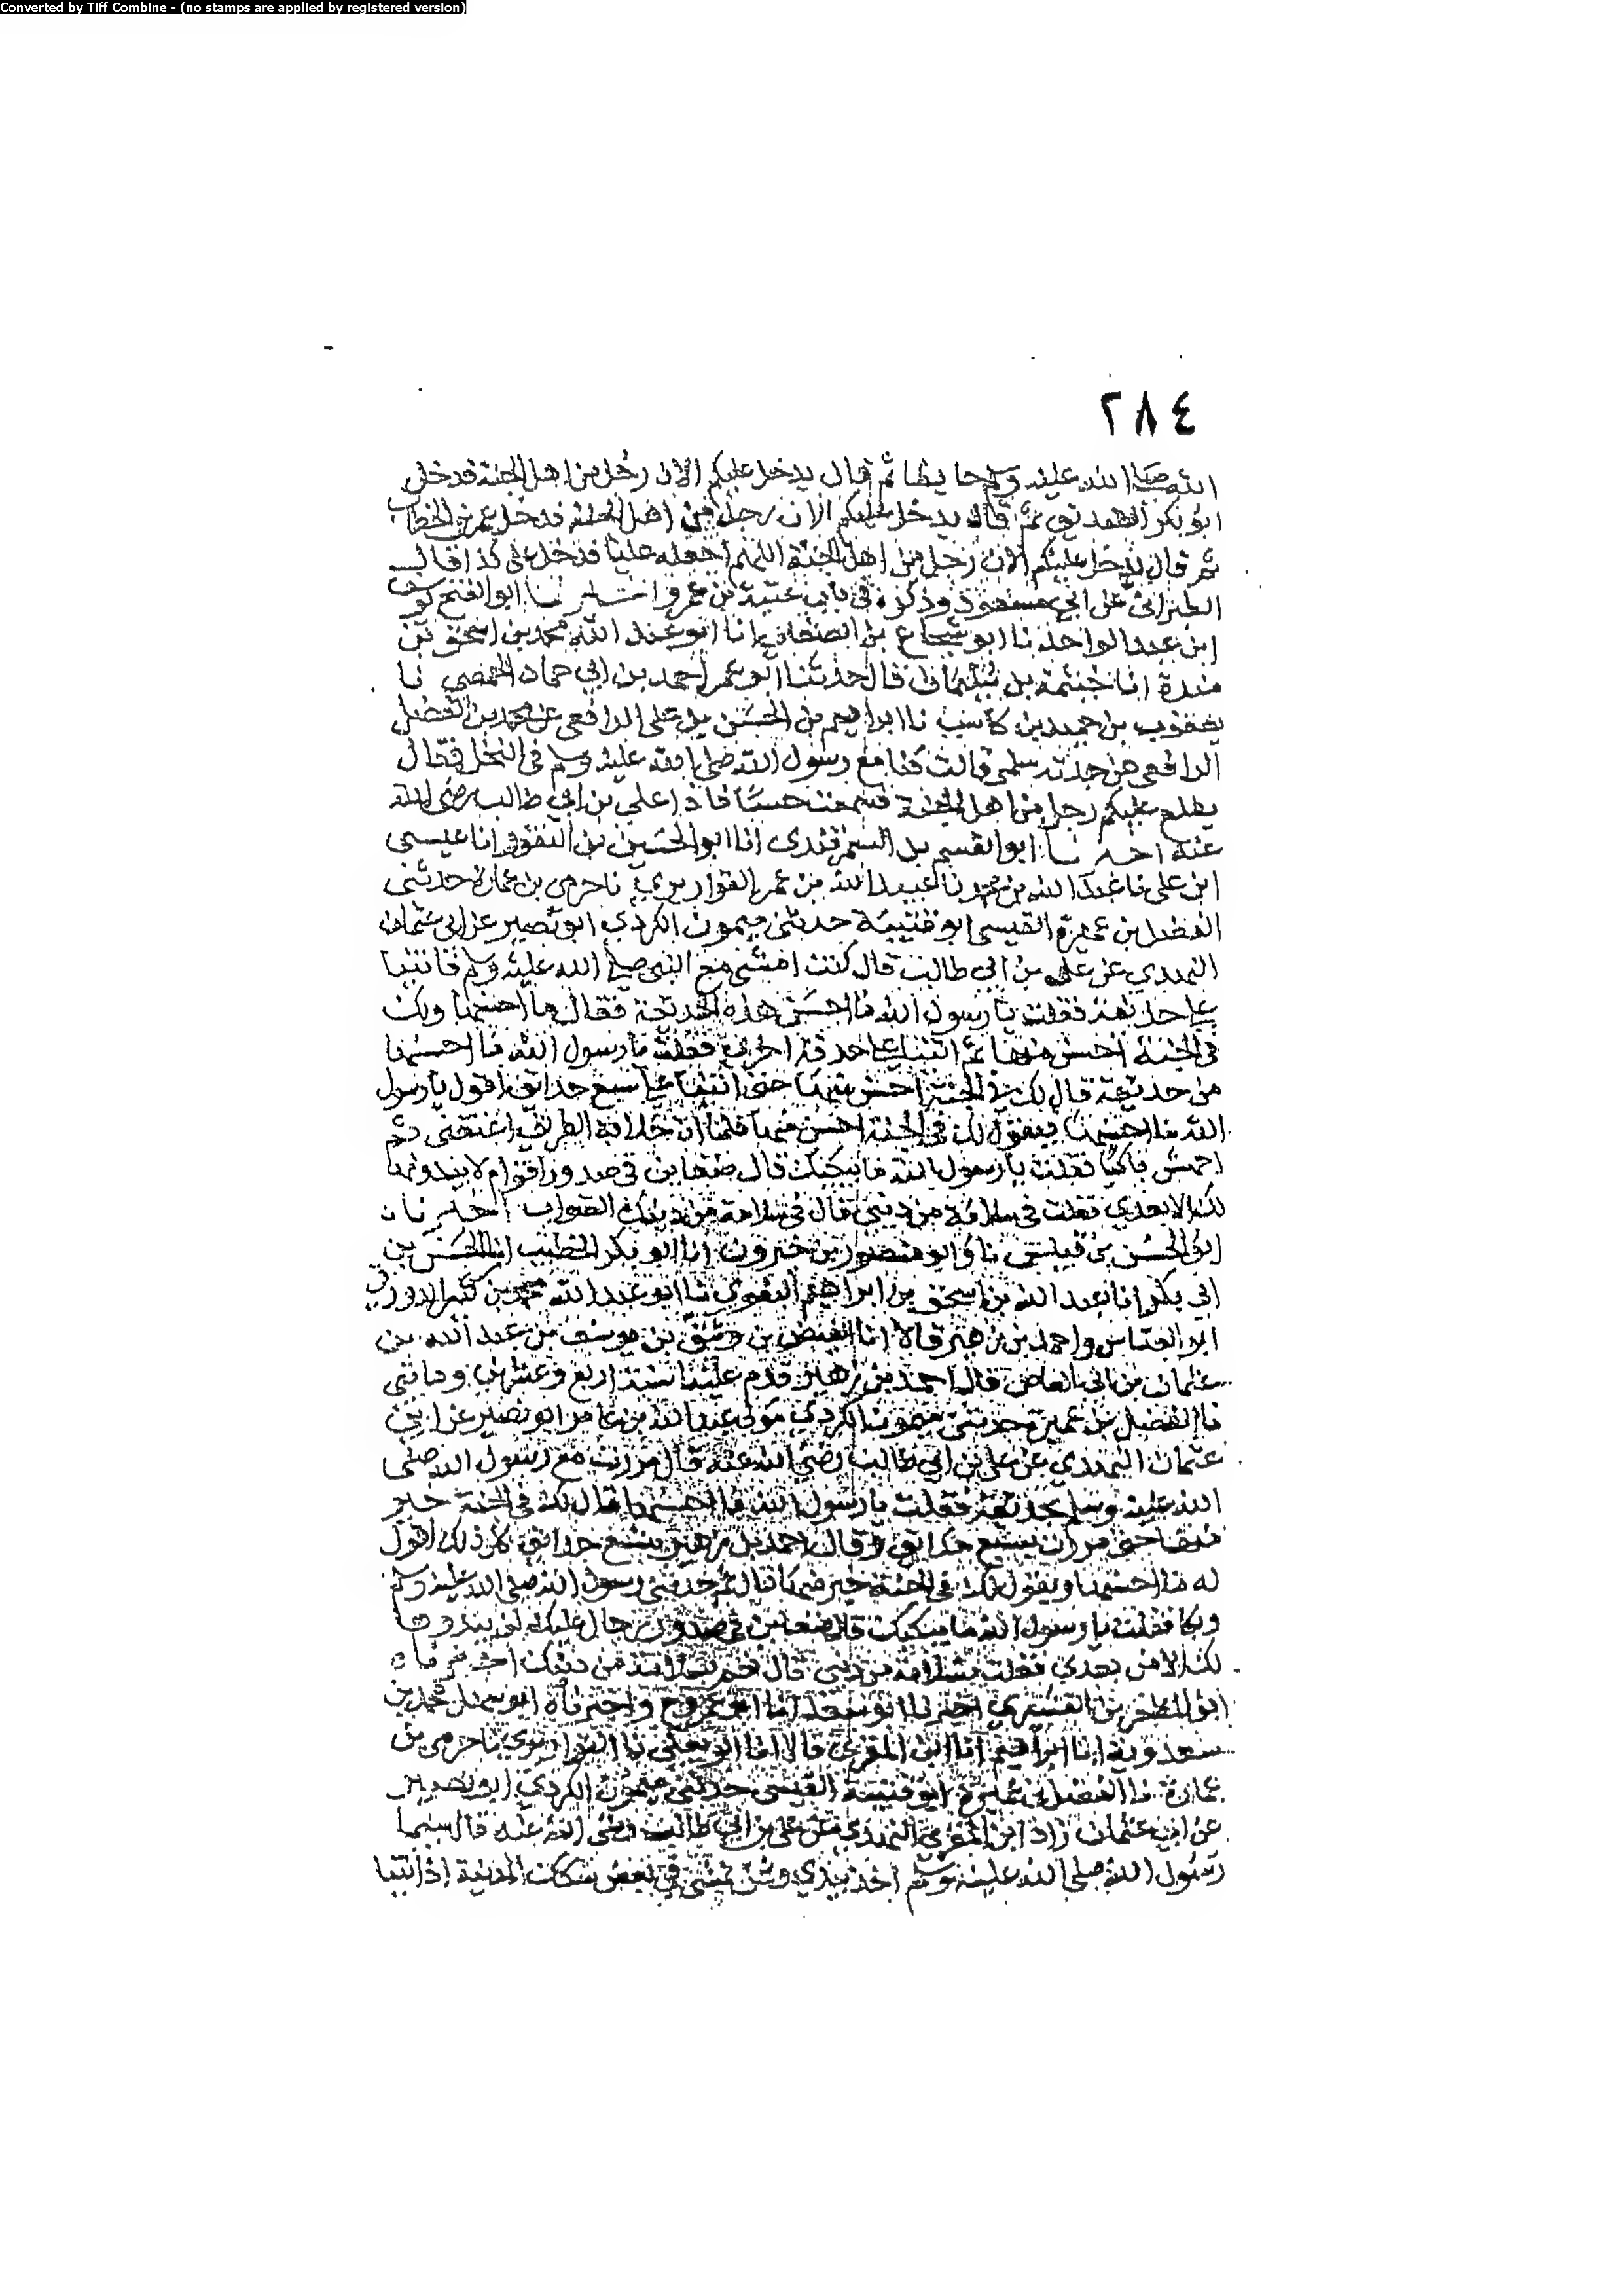 Converted by Tiff Combine - (no stamps are applied by registered version)
٢٨٤
الله صلى الله عليه وسلم حايطا ثم قال يدخل عليكم الان رجل من اهل الجنة فدخل
ابو بكر الصديق ثم قال يدخل عليكم الان رجل من اهل الجنة فدخل عمر بن الخطاب
ثم قال يدخل عليكم الان رجل من اهل الجنة اللهم اجعله عليا فدخل على كذا قال
الطبرانى عن ابى مسعود وذكره فى باب عتبة بن عمرو اخبرنا ابو الفتح يوسف
ابن عبد الواحد نا ابو شجاع بن انا ابو عبد الله محمد بن اسحق بن
مندة انا خيثمة بن سليمان قال حدثنا ابو عمر احمد بن ابي حماد الحمصي نا
يعقوب بن حميد بن كاسب نا ابراهيم بن الحسن بن على الرافعى عن محمد بن الفضل
الرافعى عن جدته سلمى قالت كنا مع رسول الله صلى الله عليه وسلم فى النخل فقال
يطلع عليكم رجل من اهل الجنة فسمعت حسا فاذا علي بن ابي طالب رضى الله
عنه اخبرنا ابو القسم بن السمرقندى انا ابو الحسين بن النقور انا عيسى
ابن على نا عبد الله بن محمد نا عبيد الله بن عمر القواريري نا حرمى بن عمارة حدثنى
الفضل بن عميرة القيسى ابو قتيبة حدثنى ميمون الكردي ابو نصير عن ابى عثمان
النهدي عن على بن ابى طالب قال كنت امشى مع النبى صلى الله عليه وسلم فاتينا
على حديقة فقلت يا رسول الله ما احسن هذه الحديقة فقال ما احسنها ولك
فى الجنة احسن منها ثم اتينا على حديقة اخرى فقلت يا رسول الله ما احسنها
من حديقة قال لك فى الجنة احسن منها حتى اتينا على سبع حدايق اقول يا رسول
الله ما احسنها فيقول لك فى الجنة احسن منها فلما ان خلا فه الطريق اعتنقنى ثم
اجهش باكيا فقلت يا رسول الله ما يبكيك قال ضغاين فى صدور اقوام لا يبدونها
لك الا بعدي فقلت فى سلامة من دينى قال فى سلامة من دينك الصواب اخبرنا
ابو الحسن بن قبيس نا وابو منصور بن خيرون انا ابو بكر الخطيب انا الحسن بن
ابي بكر انا عبد الله بن اسحق بن ابراهيم البغوى نا ابو عبد الله محمد بن الدورقي
ابو العباس واحمد بن زهير قالا انا الفيض بن وثيق بن يوسف بن عبد الله بن
عثمان بن ابى العاص قال احمد بن زهير قدم علينا سنة اربع وعشرين ومائتى
نا الفضل بن عميرة حدثنى ميمون الكردي مولى عبد الله بن عامر ابو نصير عن ابي
عثمان النهدي عن على بن ابي طالب رضي الله عنه قال مررت مع رسول الله صلى
الله عليه وسلم بحديقة فقلت يا رسول الله ما احسنها قال لك فى الجنة خير
منها حتى مررت بسبع حدائق وقال احمد بن زهير بتسع حدائق كل ذلك اقول
له ما احسنها ويقول لك فى الجنة خير منها قال ثم جذبنى رسول الله صلى الله عليه وسلم
وبكا فقلت يا رسول الله ما يبكيك قال ضغاين فى صدور رجال عليك لن يبدوها
لك الا من بعدى فقلت بسلامة من دينى قال نعم بسلامة من دينك اخبرناه
ابو المظفر بن القشيري اخبرنا ابو سعد انا ابو عمرو ح واخبرناه ابو سهل محمد بن
سعدويه انا ابراهيم انا ابن المقرئ قالا انا ابو يعلى نا القواريري نا حرمى بن
عمارة نا الفضل بن عميرة ابو قتيبة القيسى حدثنى ميمون الكردي ابو نصير
عن ابي عثمان زاد ابن المقرى النهدي عن على بن ابي طالب رضى الله عنه قال بينما
رسول الله صلى الله عليه وسلم اخذ بيدي ونحن نمشى فى بعض سكك المدينة اذ اتينا